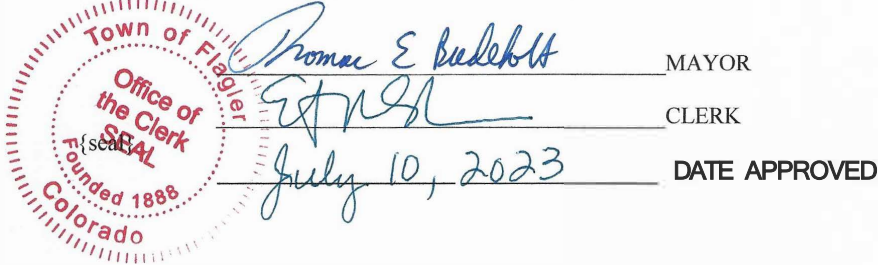 Town of Flagler
Office of
the Clerk
SEAL
Founded 1888
Colorado
{seal}
Thomas E MAYOR
CLERK
July 10, 2023 DATE APPROVED